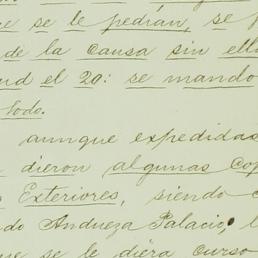 que se le pedían, se p
de la causa sin ell
ud el 20: se mando
todo.
aunque expedidas
dieron algunas cop
Exteriores, siendo
do Andueza Palacio, l
que se le diera curso